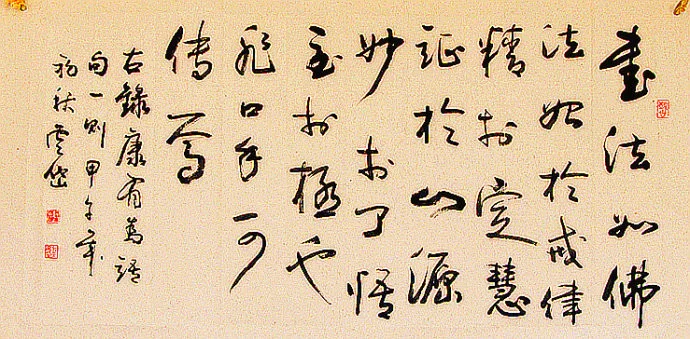 書法如佛
法始於戒律
精於定慧
証於心源
妙於了悟
至於極也
非口手可
傳焉
右錄康有為語
句一則甲午年
初秋